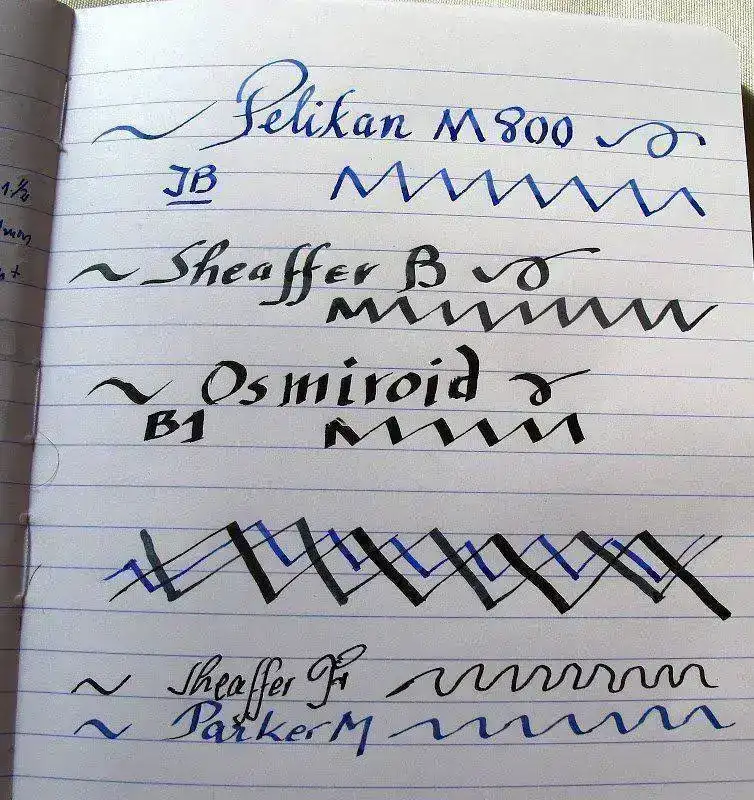 Pelikan M800
IB
Sheaffer B
Osmiroid
B1
Sheaffer F
Parker M
1 1/2